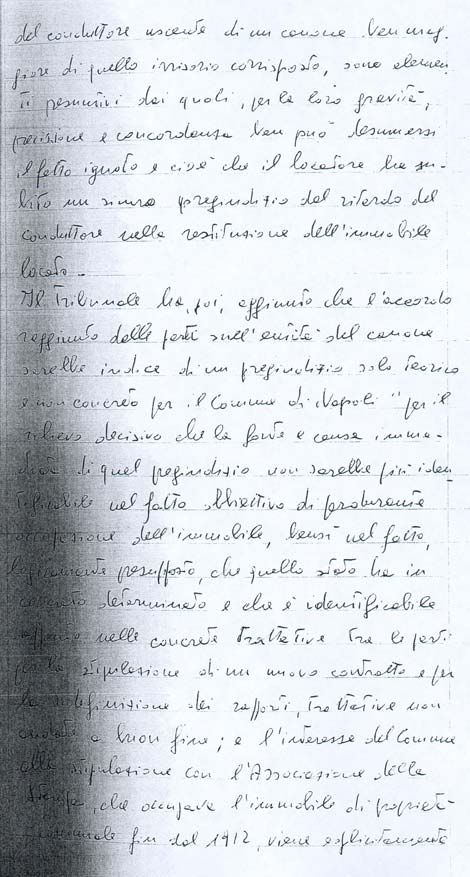 del conduttore uscente di un canone ben mag-
giore di quello irrisorio corrisposto, sono elemen
ti presuntivi dai quali, per la loro gravità,
precisione e concordanza ben può desumersi
il fatto ignoto e cioè che il locatore ha su-
bito un sicuro pregiudizio dal ritardo del
conduttore nella restituzione dell'immobile
locato.
Il Tribunale ha, poi, aggiunto che l'accordo
raggiunto dalle parti sull'entità del canone
sarebbe indice di un pregiudizio solo teorico
e non concreto per il Comune di Napoli "per il
rilievo decisivo che la fonte e causa imme-
diata di quel pregiudizio non sarebbe più iden
tificabile nel fatto obbiettivo di perdurante
occupazione dell'immobile, bensì nel fatto,
logicamente presupposto, che quello stato ha in
concreto determinato e che è identificabile
appunto nelle concrete trattative tra le parti
per la stipulazione di un nuovo contratto e per
la ridefinizione dei rapporti, trattative non
andate a buon fine; e l'interesse del Comune
alla stipulazione con l'Associazione della
Stampa, che occupava l'immobile di propriet
comunale fin dal 1912, viene esplicitamente